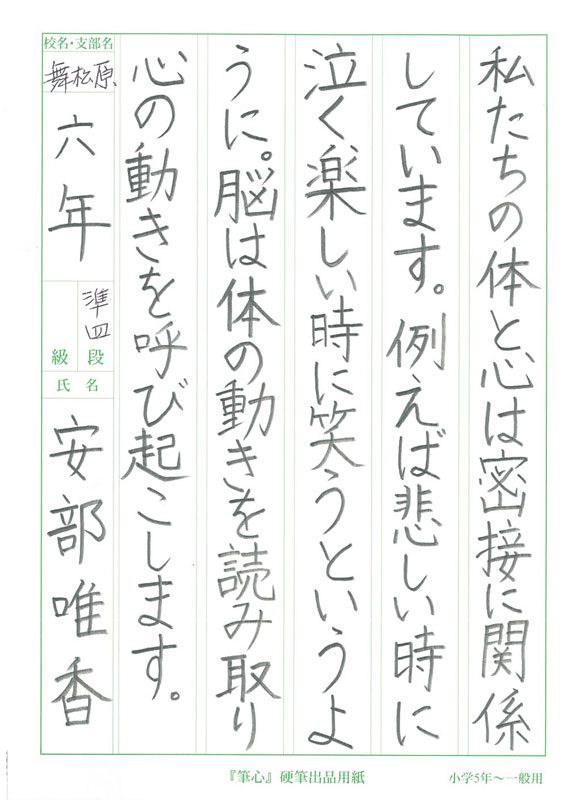 私たちの体と心は密接に関係
しています。例えば悲しい時に
泣く楽しい時に笑うというよ
うに。脳は体の動きを読み取り
心の動きを呼び起こします。
校名・支部名
舞松原
六年
準四
段
級
氏名
安部唯香
『筆心』硬筆出品用紙
小学5年〜一般用